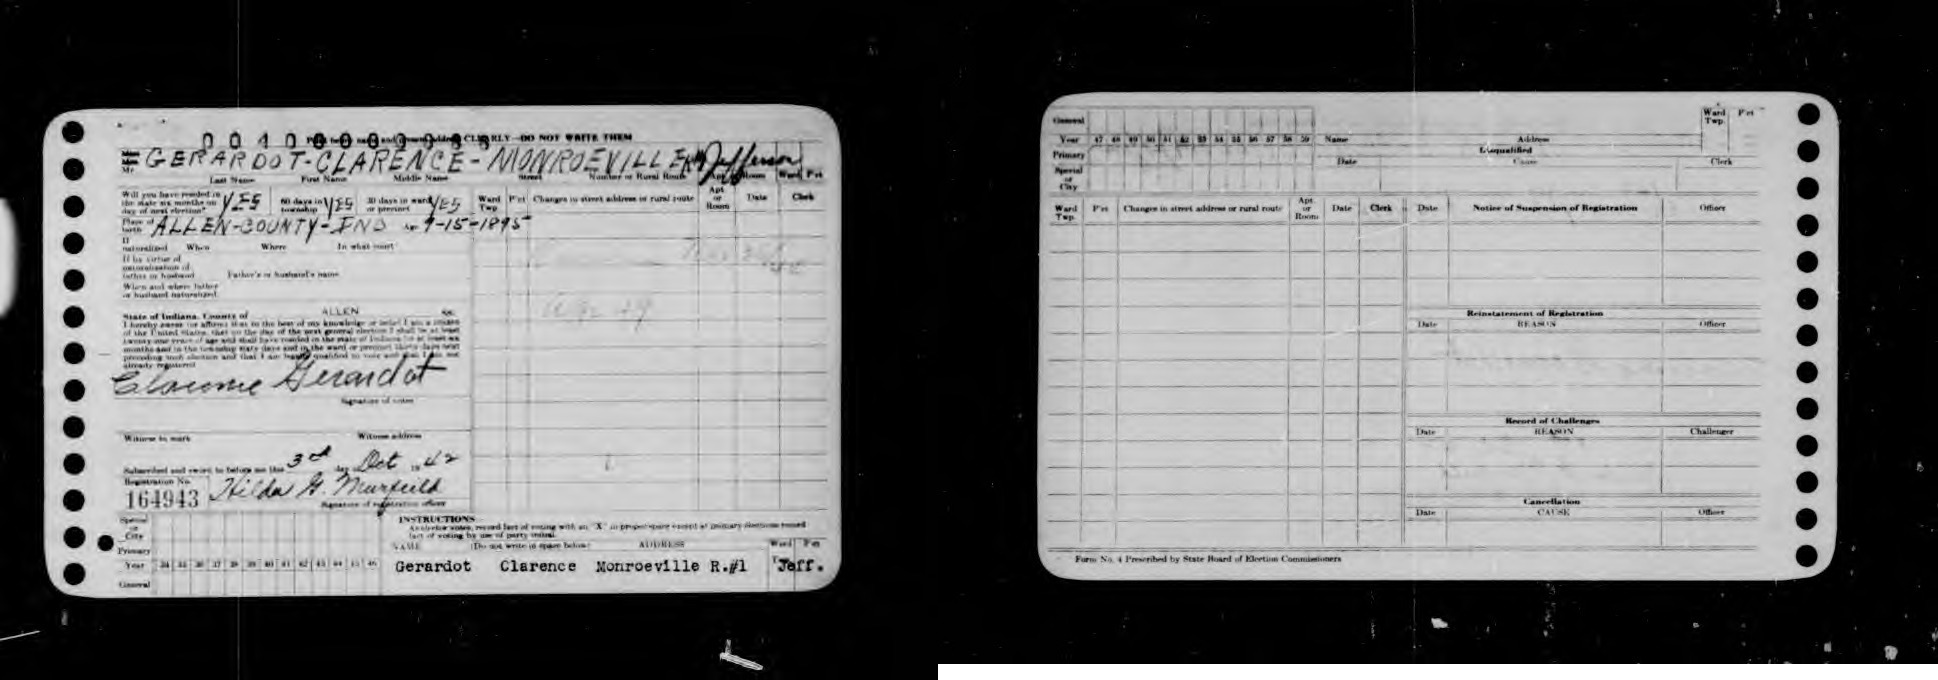 DO NOT WRITE THEM
GERARDOT-CLARENCE-MONROEVILLE Jefferson
Last Name First Name Middle Name Street Number or Rural Route Room Ward P'ct
Will you have resided in the state six months on day of next election? YES 60 days in township YES 30 days in ward or precinct YES
Ward Twp P'ct Changes in street address or rural route Apt or Room Date Clerk
Place of birth ALLEN-COUNTY-IND Age 9-15-1895
If naturalized When Where In what court
If by virtue of naturalization of father or husband Father's or husband's name
When and where father or husband naturalized
State of Indiana, County of ALLEN ss:
I hereby swear (or affirm) that to the best of my knowledge or belief I am a citizen
of the United States, that on the day of the next general election I shall be at least
twenty-one years of age and shall have resided in the state of Indiana for at least six
months and in the township sixty days and in the ward or precinct thirty days next
preceding such election and that I am legally qualified to vote and that I am not
already registered
Clarence Gerardot
Signature of voter
Witness to mark Witness address
Subscribed and sworn to before me this 3rd day of Oct 19 42
Registration No.
164943 Hilda G. Murfield
Signature of registration officer
Special or City
Primary
Year 34 35 36 37 38 39 40 41 42 43 44 45 46
General
INSTRUCTIONS
As elector votes, record fact of voting with an "X" in proper space except at primary elections record
fact of voting by use of party initial.
NAME (Do not write in space below) ADDRESS Ward P'ct
Gerardot Clarence Monroeville R.#1 Jeff.
General
Year 47 48 49 50 51 52 53 54 55 56 57 58 59
Primary
Special or City
Name Address Ward Twp. P'ct
Disqualified
Date Cause Clerk
Ward Twp. P'ct Changes in street address or rural route Apt. or Room Date Clerk
Date Notice of Suspension of Registration Officer
Reinstatement of Registration
Date REASON Officer
Record of Challenges
Date REASON Challenger
Cancellation
Date CAUSE Officer
Form No. 4 Prescribed by State Board of Election Commissioners